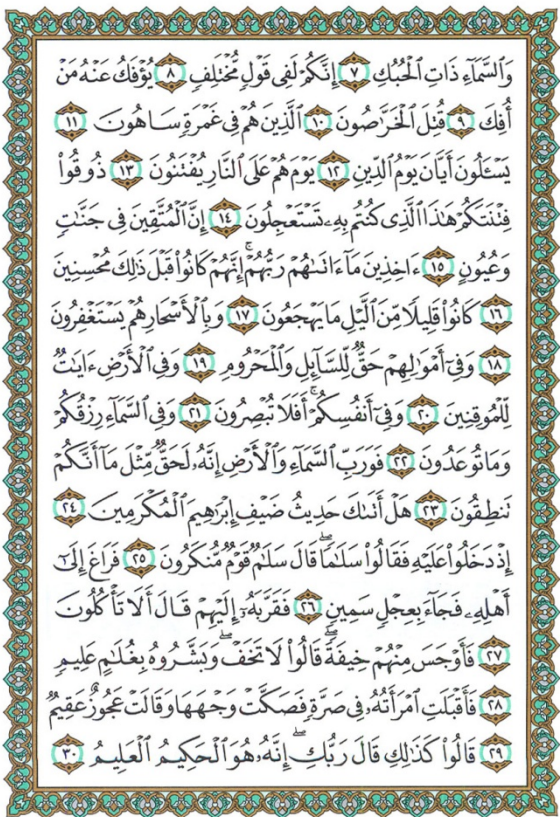 وَالسَّمَآءِ ذَاتِ الْحُبُكِ ٧ إِنَّكُمْ لَفِى قَوْلٍ مُّخْتَلِفٍ ٨ يُؤْفَكُ عَنْهُ مَنْ
أُفِكَ ٩ قُتِلَ الْخَرَّٰصُونَ ١٠ الَّذِينَ هُمْ فِى غَمْرَةٍ سَاهُونَ ١١
يَسْـَٔلُونَ أَيَّانَ يَوْمُ الدِّينِ ١٢ يَوْمَ هُمْ عَلَى النَّارِ يُفْتَنُونَ ١٣ ذُوقُوا۟
فِتْنَتَكُمْ هَٰذَا الَّذِى كُنتُم بِهِۦ تَسْتَعْجِلُونَ ١٤ إِنَّ الْمُتَّقِينَ فِى جَنَّٰتٍ
وَعُيُونٍ ١٥ ءَاخِذِينَ مَآ ءَاتَىٰهُمْ رَبُّهُمْ ۚ إِنَّهُمْ كَانُوا۟ قَبْلَ ذَٰلِكَ مُحْسِنِينَ
١٦ كَانُوا۟ قَلِيلًا مِّنَ الَّيْلِ مَا يَهْجَعُونَ ١٧ وَبِالْأَسْحَارِ هُمْ يَسْتَغْفِرُونَ
١٨ وَفِىٓ أَمْوَٰلِهِمْ حَقٌّ لِّلسَّآئِلِ وَالْمَحْرُومِ ١٩ وَفِى الْأَرْضِ ءَايَٰتٌ
لِّلْمُوقِنِينَ ٢٠ وَفِىٓ أَنفُسِكُمْ ۚ أَفَلَا تُبْصِرُونَ ٢١ وَفِى السَّمَآءِ رِزْقُكُمْ
وَمَا تُوعَدُونَ ٢٢ فَوَرَبِّ السَّمَآءِ وَالْأَرْضِ إِنَّهُۥ لَحَقٌّ مِّثْلَ مَآ أَنَّكُمْ
تَنطِقُونَ ٢٣ هَلْ أَتَىٰكَ حَدِيثُ ضَيْفِ إِبْرَٰهِيمَ الْمُكْرَمِينَ ٢٤
إِذْ دَخَلُوا۟ عَلَيْهِ فَقَالُوا۟ سَلَٰمًا ۖ قَالَ سَلَٰمٌ قَوْمٌ مُّنكَرُونَ ٢٥ فَرَاغَ إِلَىٰٓ
أَهْلِهِۦ فَجَآءَ بِعِجْلٍ سَمِينٍ ٢٦ فَقَرَّبَهُۥٓ إِلَيْهِمْ قَالَ أَلَا تَأْكُلُونَ
٢٧ فَأَوْجَسَ مِنْهُمْ خِيفَةً ۖ قَالُوا۟ لَا تَخَفْ ۖ وَبَشَّرُوهُ بِغُلَٰمٍ عَلِيمٍ
٢٨ فَأَقْبَلَتِ امْرَأَتُهُۥ فِى صَرَّةٍ فَصَكَّتْ وَجْهَهَا وَقَالَتْ عَجُوزٌ عَقِيمٌ
٢٩ قَالُوا۟ كَذَٰلِكِ قَالَ رَبُّكِ ۖ إِنَّهُۥ هُوَ الْحَكِيمُ الْعَلِيمُ ٣٠